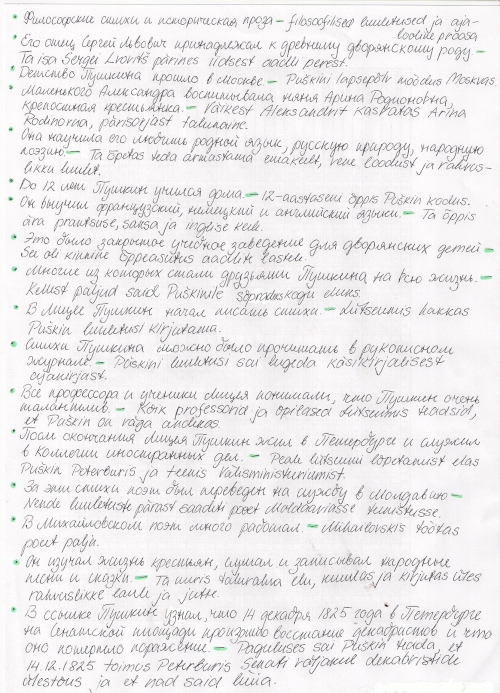 Философские стихи и историческая проза – filosoofilised luuletused ja aja-
looline proosa
Его отец Сергей Львович принадлежал к древнему дворянскому роду –
Ta isa Sergei Lvovitš pärines iidsest aadli perest.
Детство Пушкина прошло в Москве. – Puškini lapsepõlv möödus Moskvas.
Маленького Александра воспитывала няня Арина Родионовна,
крепостная крестьянка. – Väikest Aleksandrit kasvatas Arina
Rodinovna, pärisorjast talunaine.
Она научила его любить родной язык, русскую природу, народную
поэзию – Ta õpetas teda armastama emakeelt, vene loodust ja rahvus-
likku luulet.
До 12 лет Пушкин учился дома. – 12-aastaseni õppis Puškin kodus.
Он выучил французский, немецкий и английский языки. – Ta õppis
ära prantsuse, saksa ja inglise keele.
Это было закрытое учебное заведение для дворянских детей –
See oli kinnine õppeasutus aadlite lastele.
Многие из которых стали друзьями Пушкина на всю жизнь. –
Kellest paljud said Puškinile sõpradeks kogu eluks.
В Лицее Пушкин начал писать стихи. – Lütseumis hakkas
Puškin luuletusi kirjutama.
Стихи Пушкина можно было прочитать в рукописном
журнале – Puškini luuletusi sai lugeda käsikirjalisest
ajakirjast.
Все профессора и ученики Лицея понимали, что Пушкин очень
талантлив. – Kõik professorid ja õpilased Lütseumis teadsid,
et Puškin on väga andekas.
После окончания Лицея Пушкин жил в Петербурге и служил
в Коллегии иностранных дел. – Peale lütseumi lõpetamist elas
Puškin Peterburis ja teenis Välisministeeriumist.
За эти стихи поэт был переведен на службу в Молдавию –
Nende luuletuste pärast saadeti poeet Moldaaviasse teenistusse.
В Михайловском поэт много работал. – Mihailovskis töötas
poeet palju.
Он изучал жизнь крестьян, слушал и записывал народные
песни и сказки. – Ta uuris talurahva elu, kuulas ja kirjutas üles
rahvuslikke laule ja jutte.
В ссылке Пушкин узнал, что 14 декабря 1825 года в Петербурге
на Сенатской площади произошло восстание декабристов и что
оно потерпело поражение – Paguluses sai Puškin teada, et
14.12.1825 toimus Peterburis Senati väljakul dekabristide
ülestõus ja et nad said lüüa.